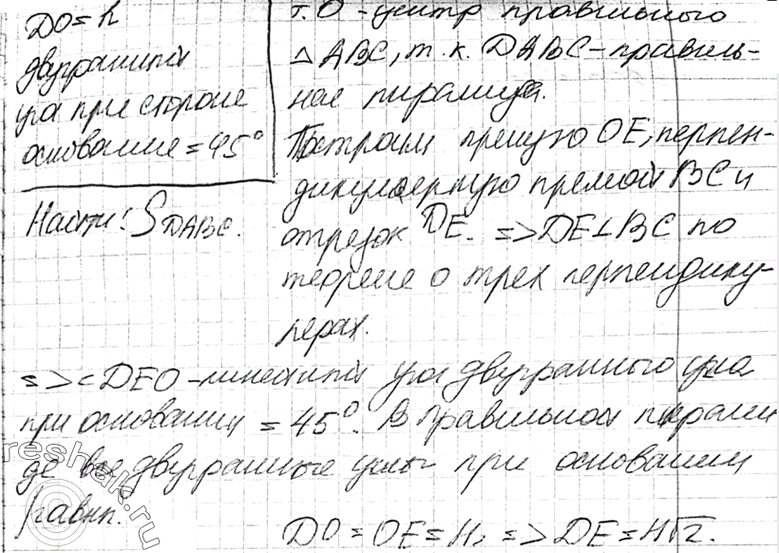 DO = h
двугранный
угол при стороне
основание = 45°
Найти: S DABC.
т. O - центр правильного
△ ABC, т. к. DABC - правиль-
ная пирамида.
Построим прямую OE, перпен-
дикулярную прямой BC и
отрезок DE. => DE ⊥ BC по
теореме о трех перпендику-
лярах.
=> ∠DEO - линейный угол двугранного угла
при основании = 45°. В правильной пирами
де все двугранные углы при основании
равны.
DO = OE = H, => DE = H√2.
reshak.ru